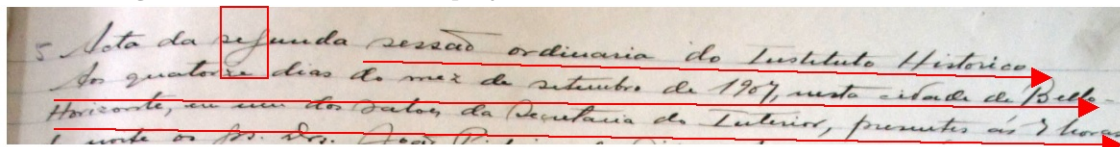 5 Acta da segunda sessaõ ordinaria do Instituto Historico
Aos quatorze dias do mez de setembro de 1907, nesta cidade de Bello
Horizonte, em um dos salões da Secretaria do Interior, presentes ás 7 horas
noite os Srs. Drs. João